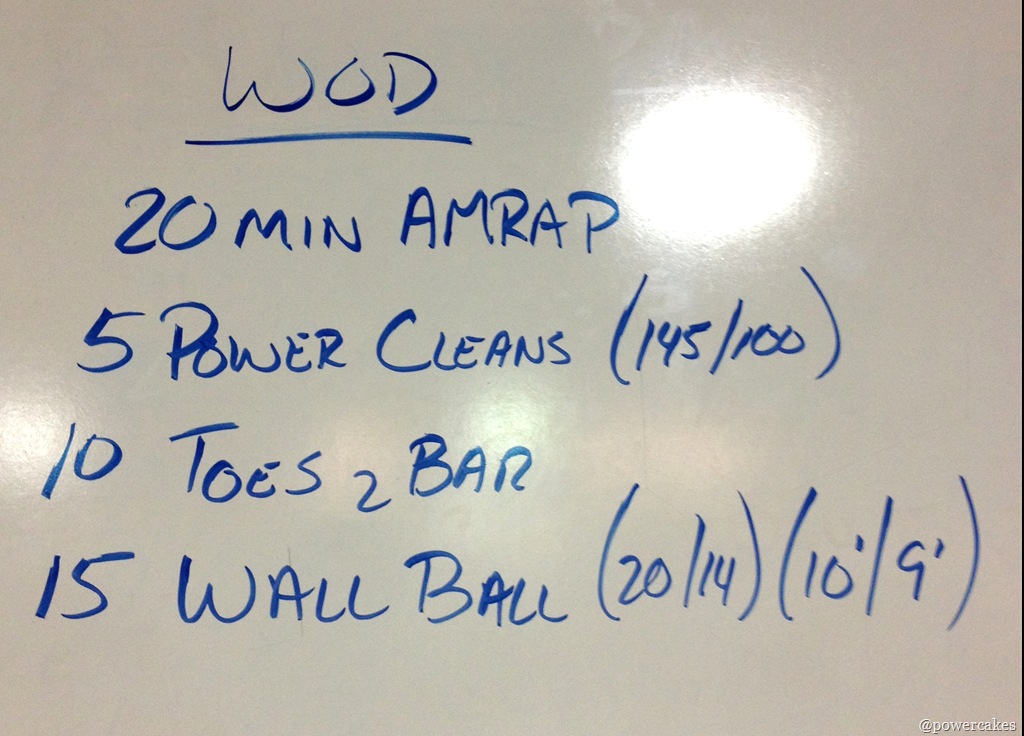 WOD
20 MIN AMRAP
5 POWER CLEANS (145/100)
10 TOES 2 BAR
15 WALL BALL (20/14) (10'/9')
@powercakes